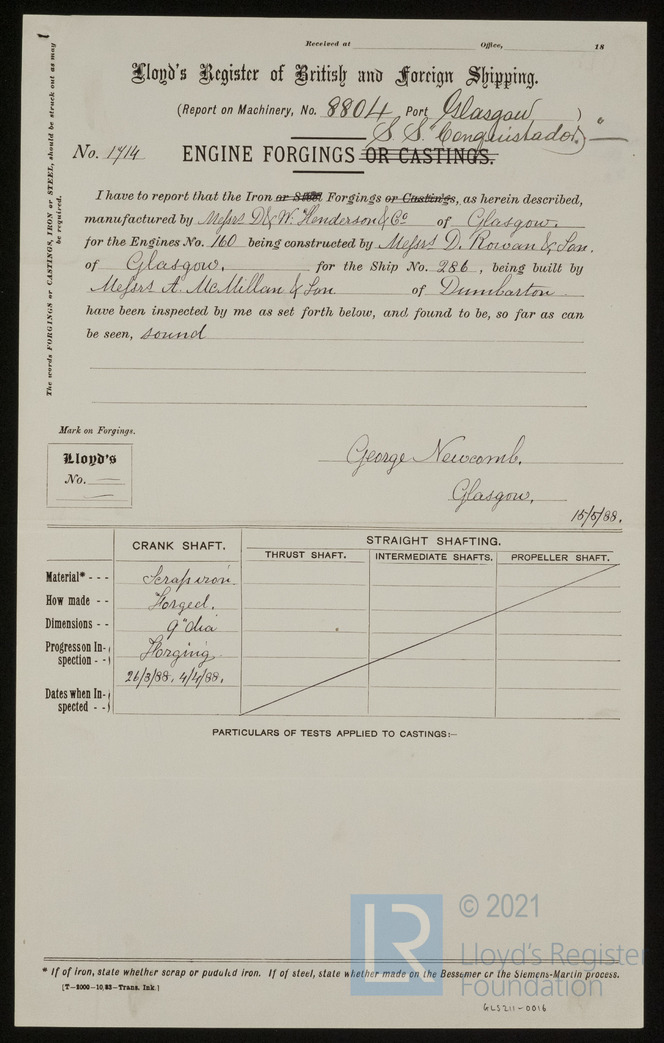 Received at Office, 18
Lloyd's Register of British and Foreign Shipping.
(Report on Machinery, No. 8804 Port Glasgow )
S. S. "Conquistador"
No. 1714 ENGINE FORGINGS OR CASTINGS.
The words FORGINGS or CASTINGS, IRON or STEEL, should be struck out as may be required.
I have to report that the Iron or Steel Forgings or Castings, as herein described,
manufactured by Messrs D. & W. Henderson & Co of Glasgow.
for the Engines No. 160 being constructed by Messrs D. Rowan & Son.
of Glasgow. for the Ship No. 286, being built by
Messrs A. McMillan & Son of Dumbarton
have been inspected by me as set forth below, and found to be, so far as can
be seen, sound
Mark on Forgings.
Lloyd's
No.
George Newcomb.
Glasgow.
15/5/88.
CRANK SHAFT. STRAIGHT SHAFTING.
THRUST SHAFT. INTERMEDIATE SHAFTS. PROPELLER SHAFT.
Material* - - - Scrap iron
How made - - Forged.
Dimensions - - 9" dia
Progress on In-spection - - Forging
26/3/88. 4/4/88.
Dates when In-spected - -
PARTICULARS OF TESTS APPLIED TO CASTINGS:—
* If of Iron, state whether scrap or puduled iron. If of steel, state whether made on the Bessemer or the Siemens-Martin process.
[T—2000—10,83—Trans. Ink.]
LR
© 2021
Lloyd's Register
Foundation
GLS211-0016